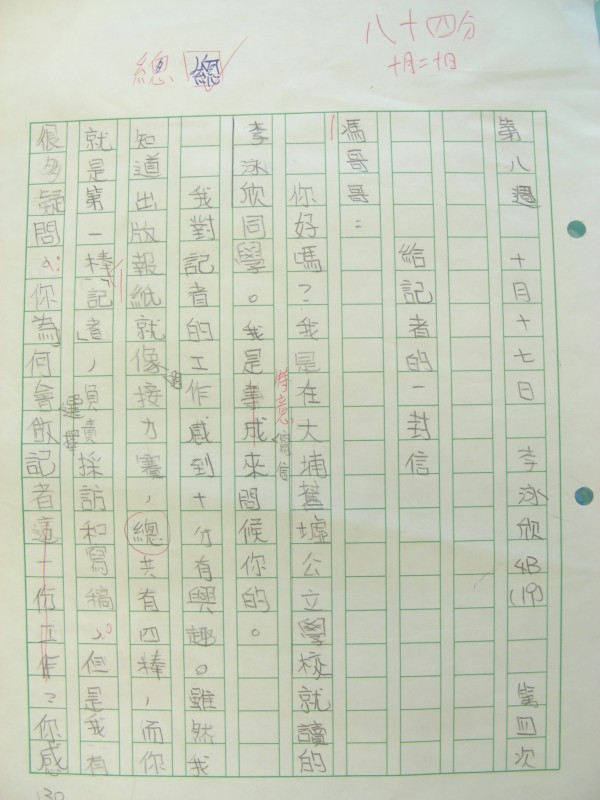 八十四分
十月二十日
總
第八週 十月十七日 李泳欣 4B(19) 第四次
給記者的一封信
馮哥哥：
你好嗎？我是在大埔舊墟公立學校就讀的
李泳欣同學。我是專成來問候你的。
特意
寫信
我對記者的工作感到十分有興趣。雖然我
知道出版報紙就像接力賽，總共有四棒，而你
就是第一棒「記者」，負責採訪和寫稿。但是我有
選擇
很多疑問：你為何會做記者這一份工作？你感
130